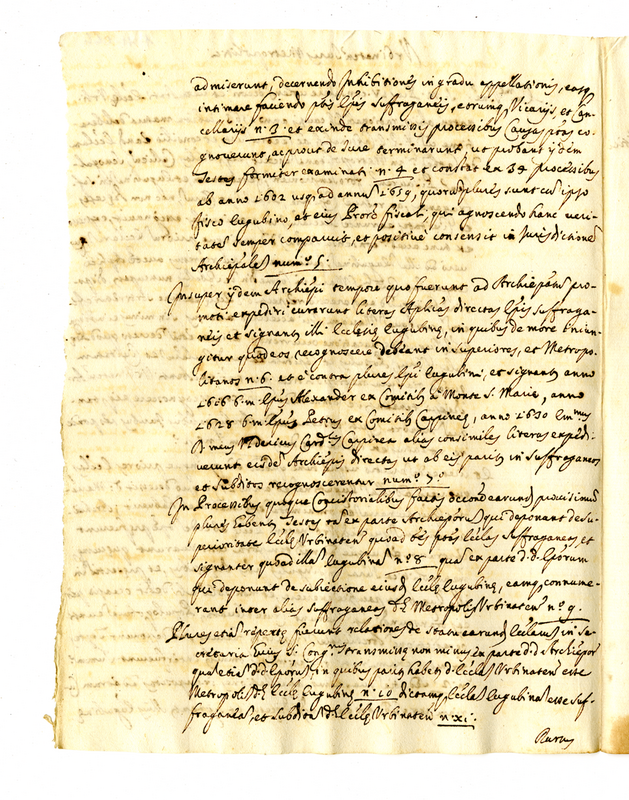 admiserunt, decernendo Inhibitiones in gradu appellationis, easq
intimare faciendo pñs Epis suffraganeis, eorumq Vicarijs, et Can-
cellarijs n.º 3. et exinde transmissis processibus Causas pñas co-
gnoverunt, ac prout de Iure terminarunt, ut probant ijdem
Testes formiter examinati n.º 4 et constat ex 34 processibus
ab anno 1602 usq ad annũ 1659, quorũ plures sunt cũ ipso
fisco Eugubino, et eius Proré fiscali, qui agnoscendo hanc veri-
tatẽ semper comparuit, et positive consensit in Jurisdictionẽ
Archiepalẽ num.º 5.
Insuper ijdem Archiepi tempore quo fuerunt ad Archiepatũ pro-
moti expediri curarunt literas Aplicas directas Epis suffraga-
neis et signanter illi Ecclesiae Eugubinae, in quibus de more Iniun-
gitur quod eos recognoscere debeant in superiores, et Metropo-
litanos n.º 6. et è contra plures Epi Eugubini, et signanter anno
1606 b.m. Epus Alexander ex Comitib. à Monte S. Mariae, anno
1628 b.m. Epus Petrus ex Comitib. Carpineae, anno 1630 Em.mus
Card.lis Carpinea alias consimiles literas expedi-
verunt eisdẽ Archiepis directas ut ab eis pariter in suffraganeos
et subditos recognoscerentur num.º 7.º
In Processibus quoque Concistorialibus factis de concedearum provisionũ
plures habentur Testes tã ex parte Archiepõrũ, qui deponant de su-
perioritate Ecclae Urbinaten quoad oẽs pñas Eclias suffraganeas et
signanter quoad illã Eugubinã n.º 8 quã ex parte d.d. Epõrum
qui deponunt de subiectione eiusdẽ Eclae Eugubinae, eamq connume-
rant inter alias suffraganeas dae Metropolis Urbinaten n.º 9.
Plures etiã repertae fuerunt relationes de statu earundẽ Ecclarũ in Se-
cretaria huius S. Cong.nis transmissae non minus ex parte d.d. Archiepõr
quã etiã d.d. Epõrũ, in quibus pariter habetur d. Ecclã Urbinaten esse
Metropolẽ d. Eclae Eugubinae n.º 10 dictamq Ecclã Eugubinã esse suf-
fraganeã, et subditã d. Eclae Urbinaten n.º XI.
Rursus